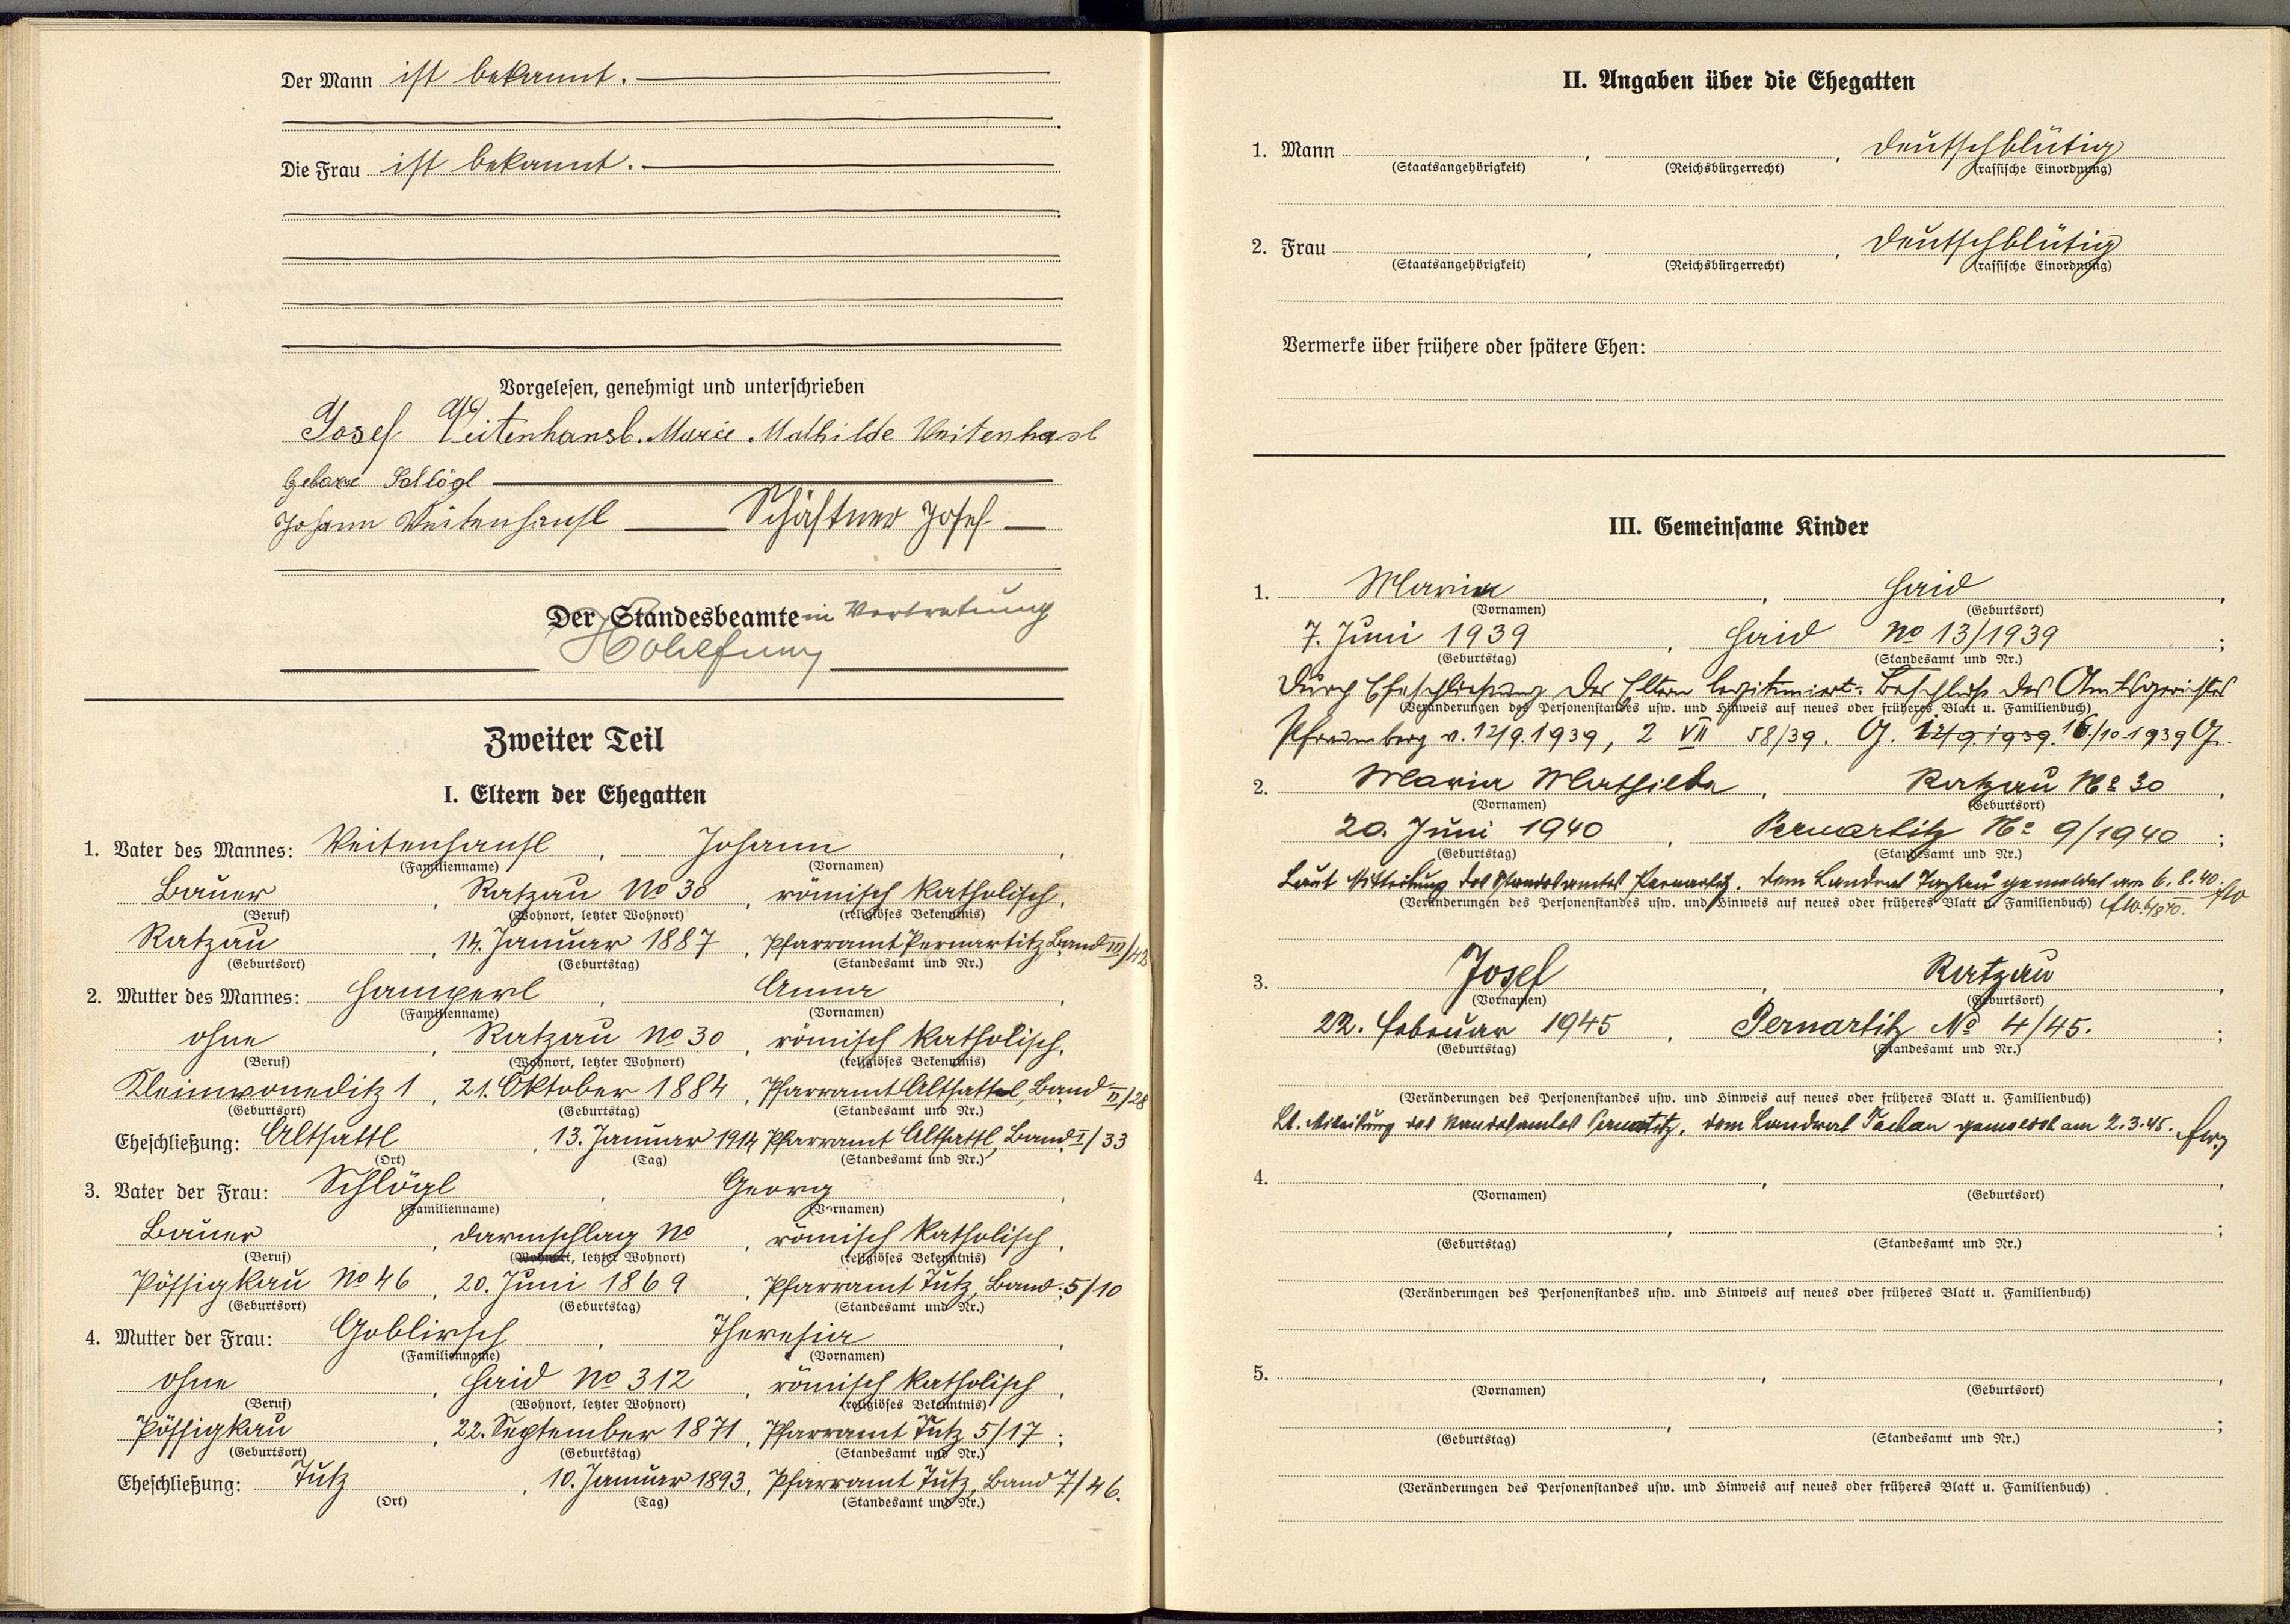 Der Mann ist bekannt.
Die Frau ist bekannt.
Vorgelesen, genehmigt und unterschrieben
Josef Veitenhansl. Marie Mathilde Veitenhasl
geborene Schlögl
Johann Veitenhansl Schäftner Josef
Der Standesbeamte in Vertretung
Zweiter Teil
I. Eltern der Ehegatten
1. Vater des Mannes: Veitenhansl, Johann,
(Familienname) (Vornamen)
Bauer, Ratzau No 30, römisch katholisch,
(Beruf) (Wohnort, letzter Wohnort) (religiöses Bekenntnis)
Ratzau, 14. Januar 1887, Pfarramt Pernartitz Band III/42
(Geburtsort) (Geburtstag) (Standesamt und Nr.)
2. Mutter des Mannes: Hamperl, Anna,
(Familienname) (Vornamen)
ohne, Ratzau No 30, römisch katholisch,
(Beruf) (Wohnort, letzter Wohnort) (religiöses Bekenntnis)
Kleinwoneditz 1, 21. Oktober 1884, Pfarramt Altsattel, Band II/28
(Geburtsort) (Geburtstag) (Standesamt und Nr.)
Eheschließung: Altsattl, 13. Januar 1914 Pfarramt Altsattl, Band I/33
(Ort) (Tag) (Standesamt und Nr.)
3. Vater der Frau: Schlögl, Georg,
(Familienname) (Vornamen)
Bauer, Darmschlag No, römisch katholisch,
(Beruf) (Wohnort, letzter Wohnort) (religiöses Bekenntnis)
Pössigkau No 46, 20. Juni 1869, Pfarramt Tutz, Band: 5/10
(Geburtsort) (Geburtstag) (Standesamt und Nr.)
4. Mutter der Frau: Goblirsch, Theresia,
(Familienname) (Vornamen)
ohne, Haid No 312, römisch katholisch,
(Beruf) (Wohnort, letzter Wohnort) (religiöses Bekenntnis)
Pössigkau, 22. September 1871, Pfarramt Tutz 5/17;
(Geburtsort) (Geburtstag) (Standesamt und Nr.)
Eheschließung: Tutz, 10. Januar 1893, Pfarramt Tutz, Band 7/46.
(Ort) (Tag) (Standesamt und Nr.)
II. Angaben über die Ehegatten
1. Mann , , deutschblütig
(Staatsangehörigkeit) (Reichsbürgerrecht) (rassische Einordnung)
2. Frau , , deutschblütig
(Staatsangehörigkeit) (Reichsbürgerrecht) (rassische Einordnung)
Vermerke über frühere oder spätere Ehen:
III. Gemeinsame Kinder
1. Maria, Haid,
(Vornamen) (Geburtsort)
7. Juni 1939, Haid No 13/1939;
(Geburtstag) (Standesamt und Nr.)
Durch Eheschließung der Eltern legitimiert. Beschluss des Amtsgerichtes
(Veränderungen des Personenstandes usw. und Hinweis auf neues oder früheres Blatt u. Familienbuch)
Pfraumberg v. 12/9.1939, 2 VII 58/39. G. 12/9.1939. 16/10 1939 G.
2. Maria Mathilda, Ratzau No 30,
(Vornamen) (Geburtsort)
20. Juni 1940, Pernartitz No 9/1940;
(Geburtstag) (Standesamt und Nr.)
Laut Mitteilung des Standesamtes Pernartitz. Dem Landrat Tachau gemeldet am 6.8.40.
(Veränderungen des Personenstandes usw. und Hinweis auf neues oder früheres Blatt u. Familienbuch)
3. Josef, Ratzau,
(Vornamen) (Geburtsort)
22. Februar 1945, Pernartitz No 4/45.;
(Geburtstag) (Standesamt und Nr.)
(Veränderungen des Personenstandes usw. und Hinweis auf neues oder früheres Blatt u. Familienbuch)
Lt. Mitteilung des Standesamtes Pernartitz. Dem Landrat Tachau gemeldet am 2.3.45.
4. , ,
(Vornamen) (Geburtsort)
, ;
(Geburtstag) (Standesamt und Nr.)
(Veränderungen des Personenstandes usw. und Hinweis auf neues oder früheres Blatt u. Familienbuch)
5. , ,
(Vornamen) (Geburtsort)
, ;
(Geburtstag) (Standesamt und Nr.)
(Veränderungen des Personenstandes usw. und Hinweis auf neues oder früheres Blatt u. Familienbuch)